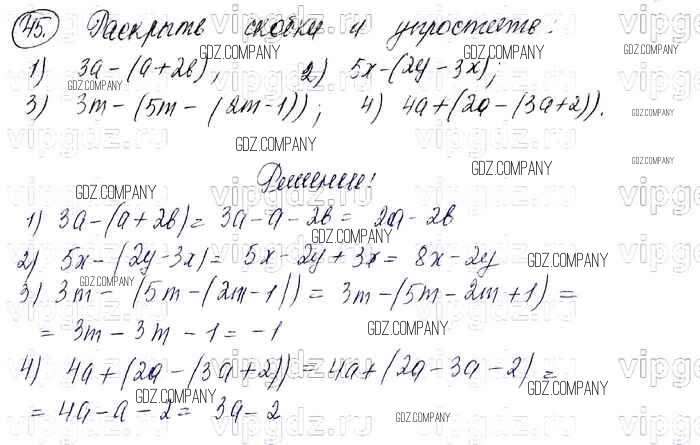 45. Раскрыть скобки и упростить:
1) 3a-(a+2в); 2) 5x-(2y-3x);
3) 3m-(5m-(2m-1)); 4) 4a+(2a-(3a+2)).
Решение:
1) 3a-(a+2в)= 3a-a-2в= 2a-2в
2) 5x-(2y-3x)= 5x-2y+3x= 8x-2y
3) 3m-(5m-(2m-1))= 3m-(5m-2m+1)=
= 3m-3m-1=-1
4) 4a+(2a-(3a+2))= 4a+(2a-3a-2)=
= 4a-a-2= 3a-2
GDZ.COMPANY
vipgdz.ru